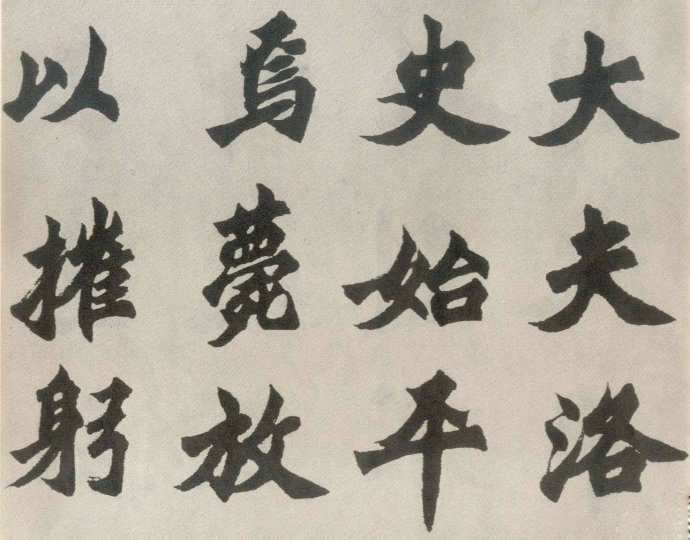 大夫洛
史始平
焉薨放
以摧躬